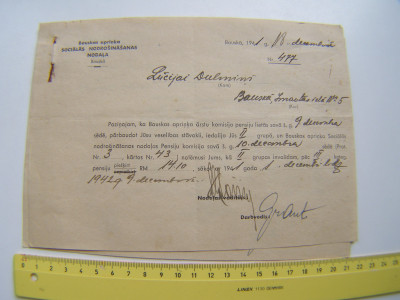 Bauskas apriņķa
SOCIĀLĀS NODROŠINĀŠANAS
NODAĻA
Bauskā
Bauskā, 1941. g. 18. decembrī
Nr. 477
Lūcijai Dulmiņi
Bauskā, ielā № 5
Paziņojam, ka Bauskas apriņķa ārstu komisija pensiju lietās savā š. g. 9 decembra
sēdē, pārbaudot Jūsu veselības stāvokli, ieskaitīja Jūs II grupā, un Bauskas apriņķa Sociālās
nodrošināšanas nodaļas Pensiju komisija savā š. g. 10. decembra sēdē (Prot.
Nr. 3, kārtas Nr. 43 nolēmusi Jums, kā II grupas invalīdam,
pensiju RM 14.10 sākot no 1941. g. 1. decembra līdz
1942. g. 9 decembrim.
Nodaļas vadītājs
Darbvedis
0 1 2 3 4 5 6 7 8 9 10 11 12 13 14 15 16 17 18 19 20